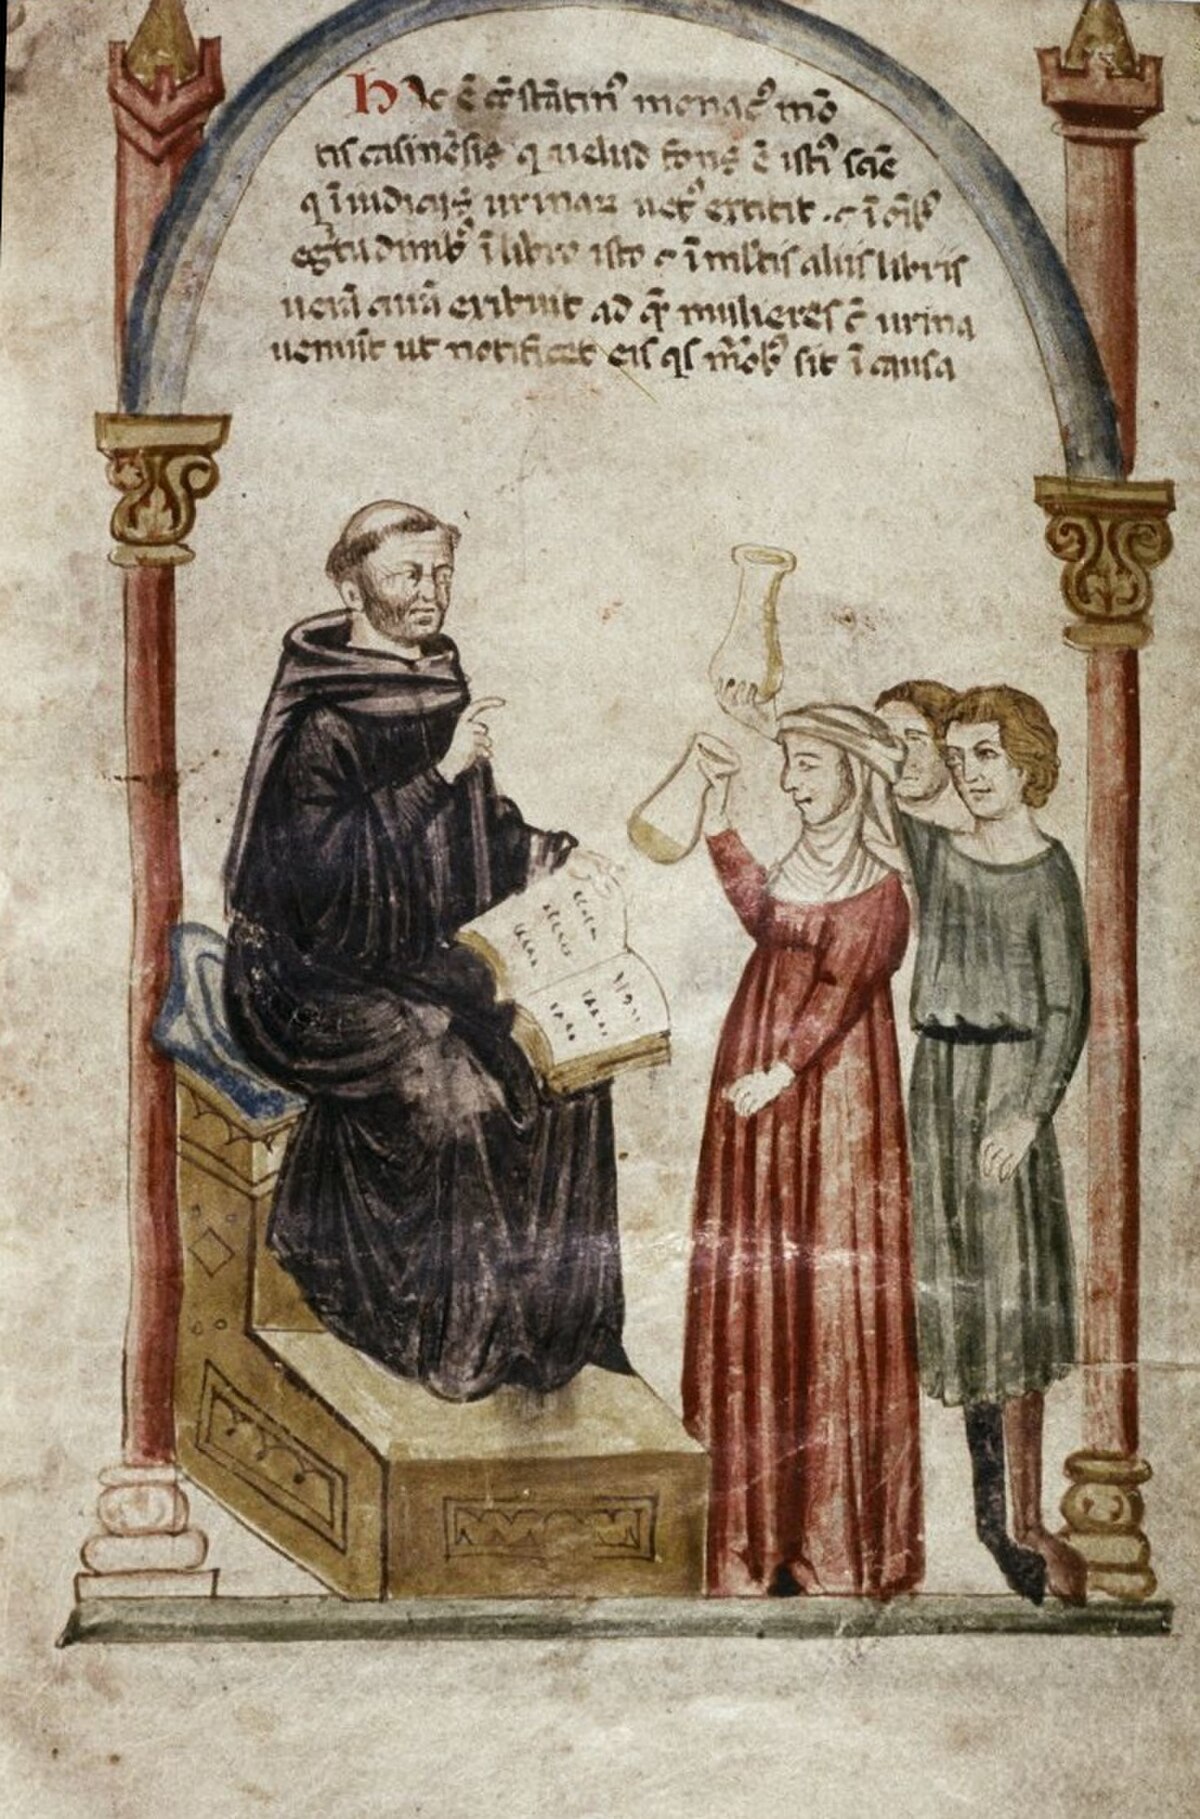 Hic ē ꝯstātin⁹ monac⁹ mō
tis casinēsis q uelud fons ē isti⁹ sciē
q ī iudiciis urinaꝝ uer⁹ extitit . ⁊ ī oīb⁹
egͥtudinib⁹ ī libro isto ⁊ ī ml̄tis aliis libris
uerā curā exibuit ad qͣ mulieres c̄ urina
ueniūt ut notificet eis qs m̄b⁹ sit ī causa